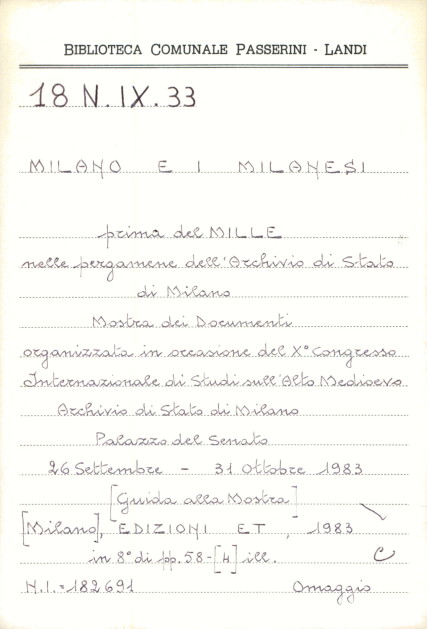 BIBLIOTECA COMUNALE PASSERINI - LANDI
18 N. IX. 33
MILANO E I MILANESI
prima del MILLE
nelle pergamene dell'Archivio di Stato
di Milano
Mostra dei Documenti
organizzata in occasione del X° Congresso
Internazionale di Studi sull'Alto Medioevo
Archivio di Stato di Milano
Palazzo del Senato
26 Settembre - 31 Ottobre 1983
[Guida alla Mostra]
[Milano], EDIZIONI ET, 1983
in 8° di pp. 58-[4] ill.
N.I. = 182691 Omaggio